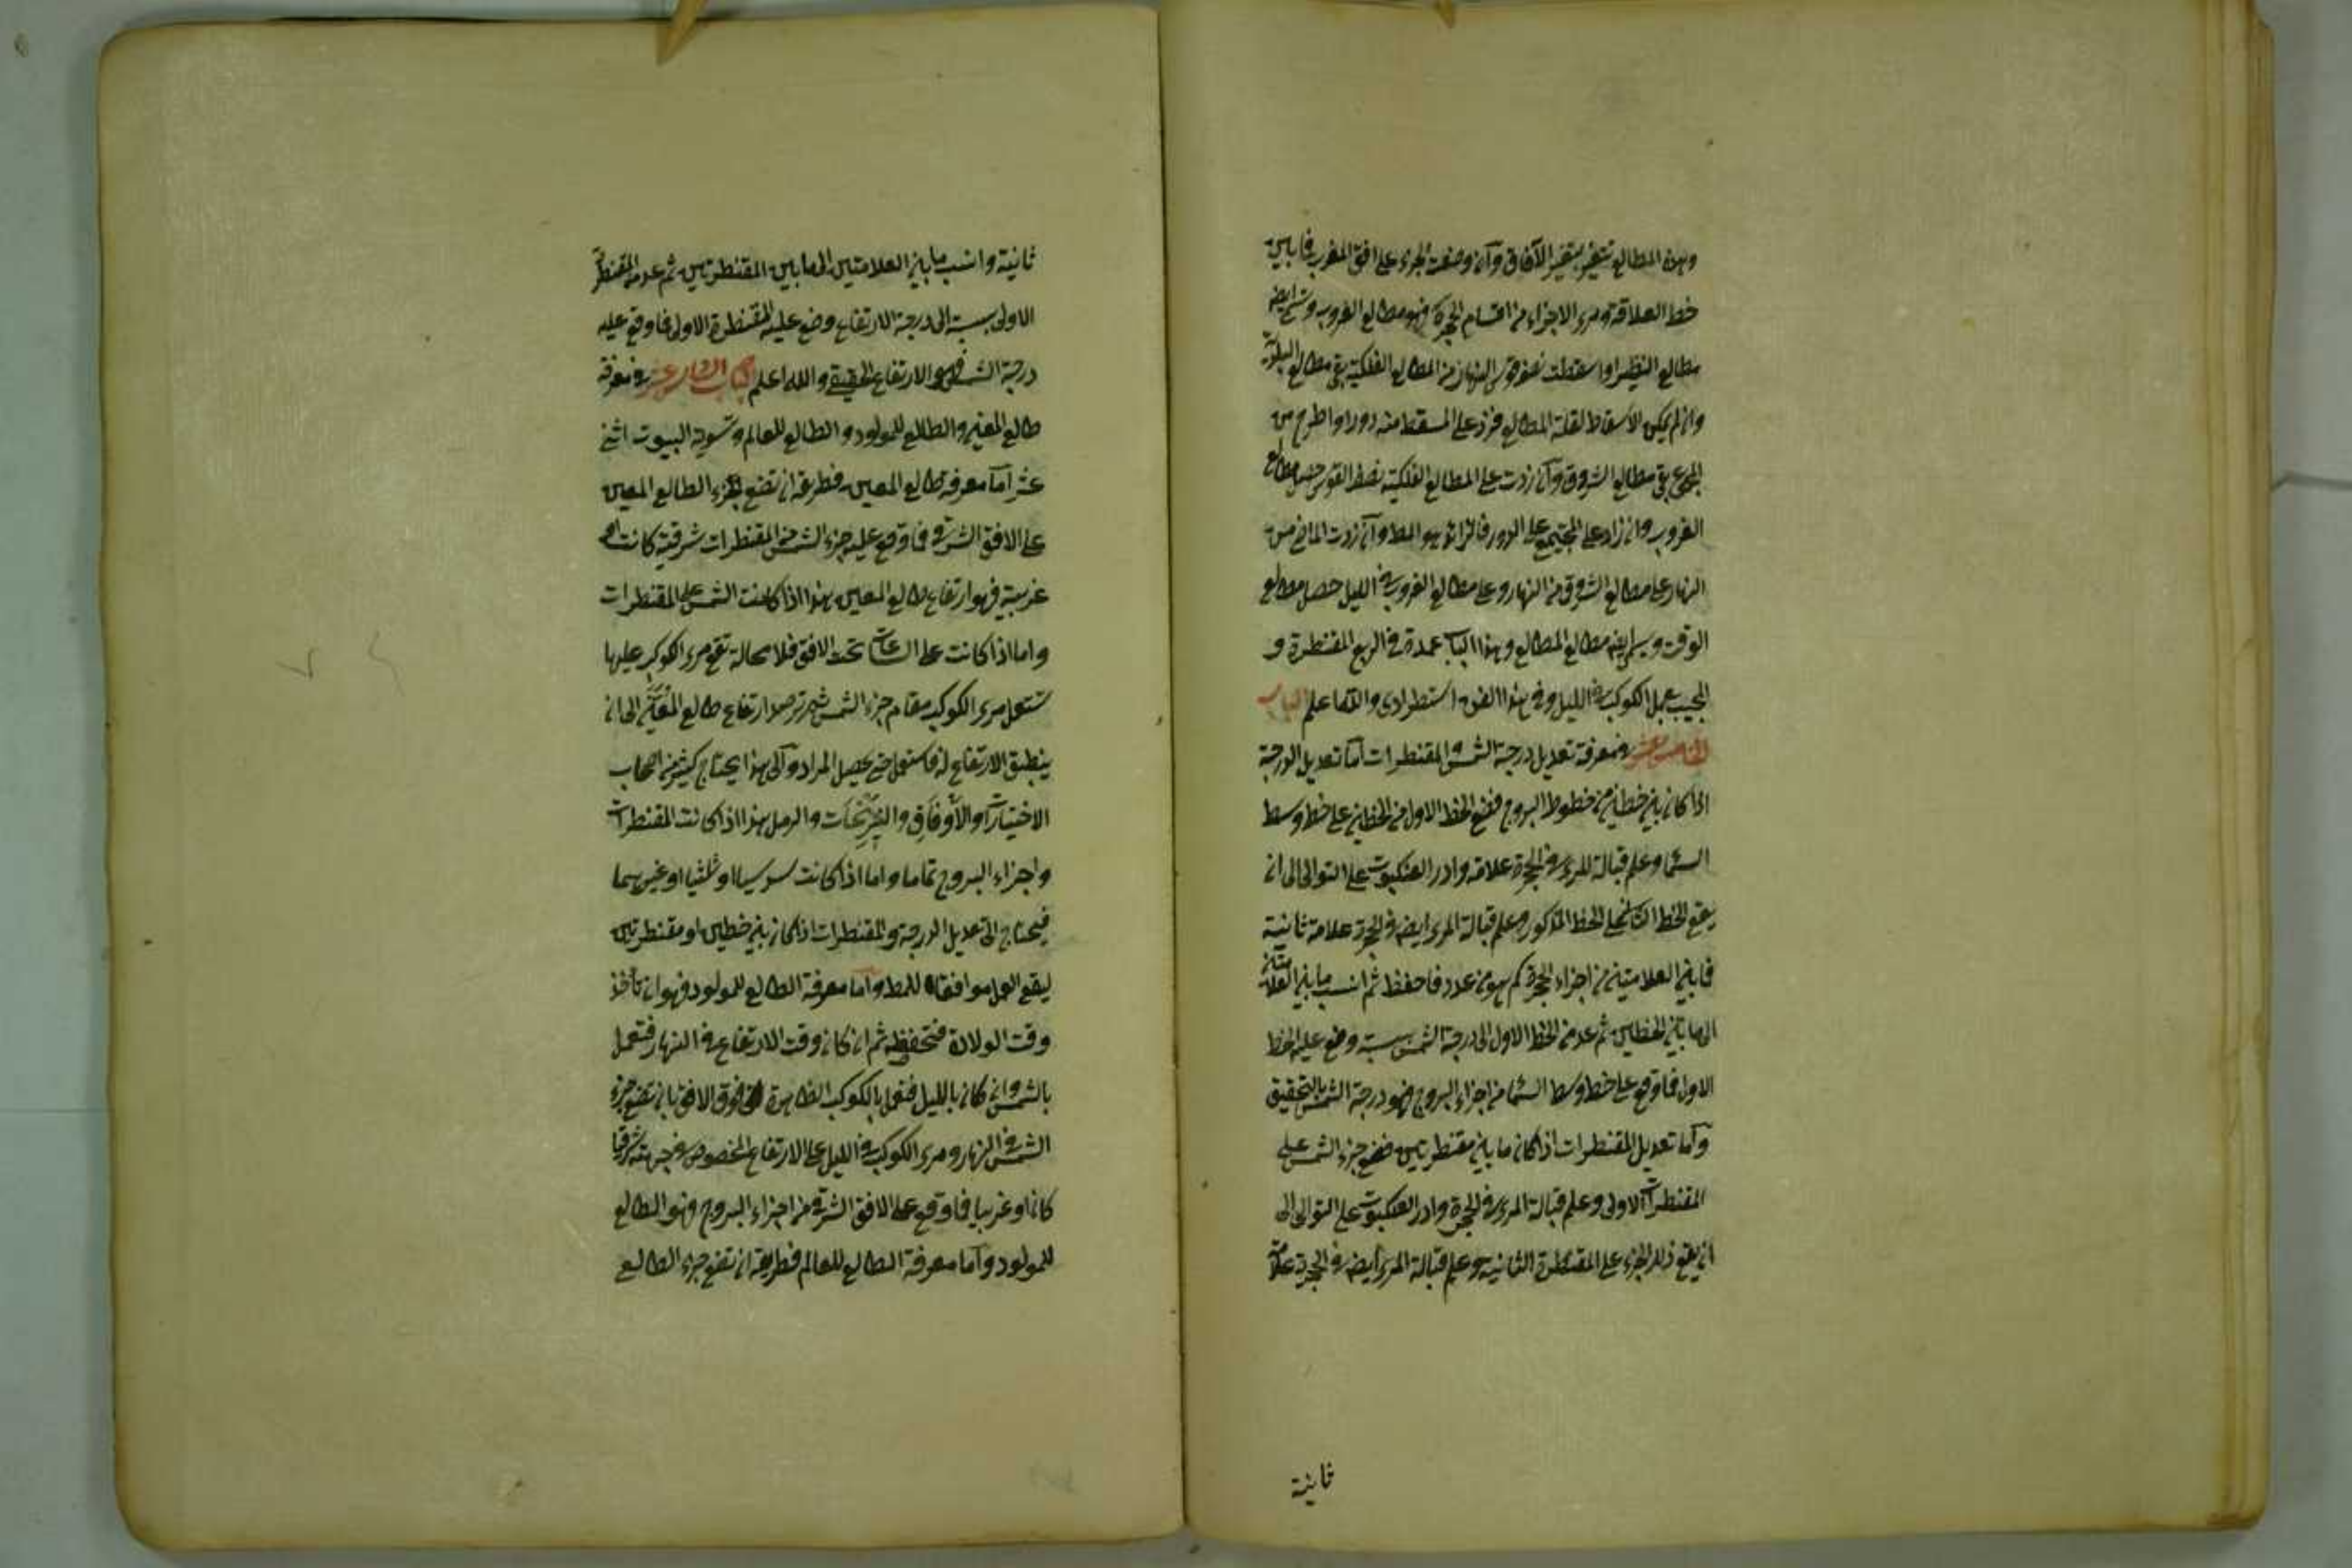 وهذه المطالع تتغير بتغير الآفاق وان وضعت الجزء على افق المغرب فما بين
خط العلاقة ومرى الاجزاء من اقسام الحجرة فهو مطالع الغروب وتسمى ايضه
مطالع النظير او اسقطت نصف قوس النهار من المطالع الفلكية بقى مطالع البلدية
وان لم يمكن الاسقاط لقلة المطالع فزد على المسقط منه دورا واطرح من
المجموع بقى مطالع الشروق وان زدت على المطالع الفلكية نصف القوس حصل مطالع
الغروب وان زاد على المجتمع على الدور فالزائد هو المط وان زدت الماضى من
النهار على مطالع الشروق من النهار وعلى مطالع الغروب فى الليل حصل مطالع
الوقت ويسمى ايضه مطالع المطالع وهذا الباب عمدة فى الربع المقنطرة و
المجيب بعمل الكوكب فى الليل وفى هذا الفن استطرادى والله اعلم الباب
الخامس عشر فى معرفة تعديل درجة الشمس والمقنطرات اما تعديل الدرجة
اذا كان بين خطين من خطوط البروج فضع الخط الاول من الخطين على خط وسط
السما وعلم قبالة المرى فى الحجرة علامة وادر العنكبوت على التوالى الى ان
يقع الخط الثانى على الخط المذكور وعلم قبالة المرى ايضه فى الحجرة علامة ثانية
فما بين العلامتين من اجزاء الحجرة كم هو من عدد فاحفظ ثم انسب ما بين العلامتين
الى ما بين الخطين ثم عد من الخط الاول الى درجة الشمس بنسبته وضع عليه الخط
الاول فما وقع على خط وسط السما من اجزاء البروج فهو درجة الشمس بالتحقيق
واما تعديل المقنطرات اذا كان ما بين مقنطرتين فضع جزء الشمس على
المقنطرات الاولى وعلم قبالة المرى فى الحجرة وادر العنكبوت على التوالى الى
ان يقع ذلك الجزء على المقنطرة الثانية وعلم قبالة المرى ايضه فى الحجرة علامة
ثانية
ثانية وانسب ما بين العلامتين الى ما بين المقنطرتين ثم عد من المقنطرة
الاولى بنسبته الى درجة الارتفاع وضع عليه المقنطرة الاولى فما وقع عليه
درجة الشمس فهو الارتفاع الحقيقى والله اعلم الباب السادس عشر فى معرفة
طالع المعين والطالع للمولود والطالع للعالم وتسوية البيوت اثنى
عشر اما معرفة طالع المعين فطريقه ان تضع جزء الطالع المعين
على الافق الشرقى فما وقع عليه جزء الشمس من المقنطرات شرقية كانت او
غربية فهو ارتفاع طالع المعين هذا اذا كانت الشمس على المقنطرات
واما اذا كانت على الساعات تحت الافق فلا محالة تقع مرى الكوكب عليها
تستعمل مرى الكوكب مقام جزء الشمس ثم ترصد ارتفاع طالع المعين الى ان
ينطبق الارتفاع له فاستعمل حتى يحصل المراد والى هذا يحتاج كثير من اصحاب
الاختيارات والاوفاق والنيرنجات والرمل هذا اذا كانت المقنطرات
واجزاء البروج تماما واما اذا كانت سدسيا او ثلثيا او غيرهما
فيحتاج الى تعديل الدرجة والمقنطرات اذا كان بين خطين او مقنطرتين
ليقع العمل موافقا للمط واما معرفة الطالع للمولود فهو ان تأخذ
وقت الولادة فتحفظه ثم ان كان وقت الارتفاع فى النهار فتعمل
بالشمس وان كان بالليل فتعمل بالكوكب الظاهرة فوق الافق بان تضع جزء
الشمس فى النهار ومرى الكوكب فى الليل على الارتفاع المخصوص فى جهته شرقيا
كان او غربيا فما وقع على الافق الشرقى من اجزاء البروج فهو الطالع
للمولود واما معرفة الطالع للعالم فطريقه ان تضع جزء الطالع